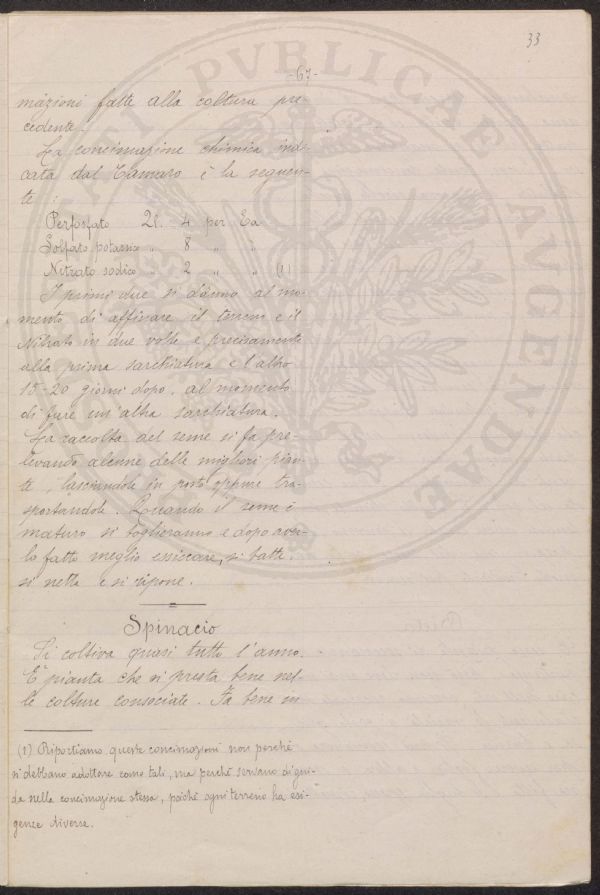 33
-67-
mazioni fatte alla coltura pre
cedente.
La concimazione chimica indi-
cata dal Tamaro è la seguen-
te:
Perfosfato Ql. 4 per Ea
Solfato potassico „ 8 „ „
Nitrato sodico „ 2 „ „ (1)
I primi due si dànno al mo-
mento di affinare il terreno e il
Nitrato in due volte e precisamente
alla prima sarchiatura e l'altro
15-20 giorni dopo, al momento
di fare un'altra sarchiatura.
La raccolta del seme si fa pre-
levando alcune delle migliori pian-
te, lasciandole in posto oppure tra-
sportandole. Quando il seme è
maturo si toglieranno e dopo aver-
lo fatto meglio essiccare, si batte
si netta e si ripone.
Spinacio
Si coltiva quasi tutto l'anno.
E' pianta che si presta bene nel-
le colture consociate. Fa bene in
(1) Riportiamo queste concimazioni non perchè
si debbano adottare come tali, ma perchè servano di gui-
da nella concimazione stessa, poichè ogni terreno ha esi-
genze diverse.
PVBLICAE
AVGENDAE